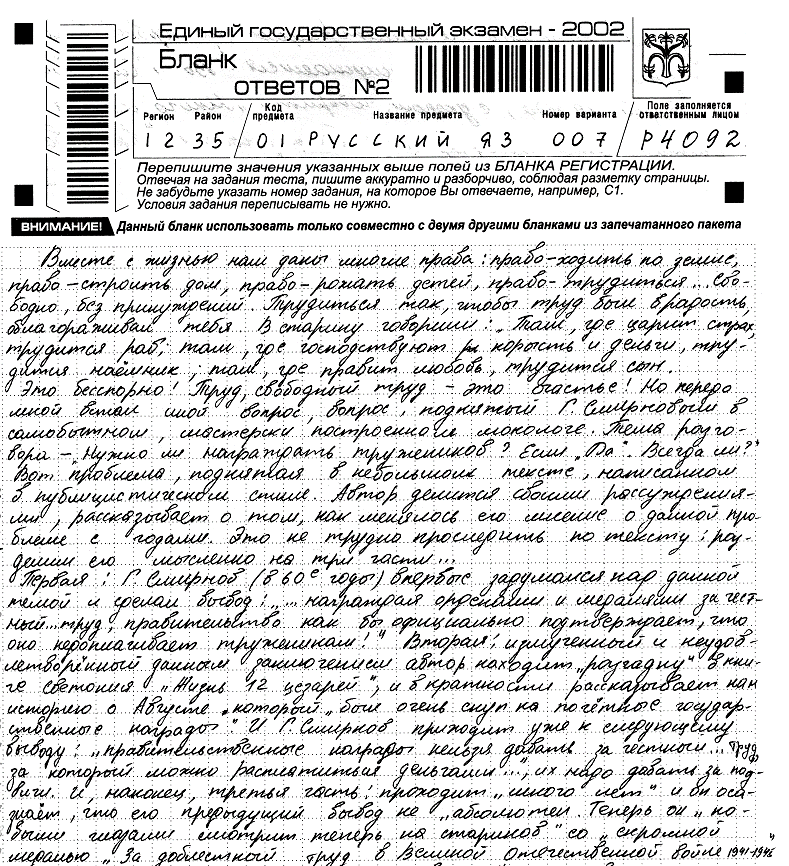 Единый государственный экзамен - 2002
Бланк
ответов №2
Регион Район Код предмета Название предмета Номер варианта Поле заполняется ответственным лицом
12 35 01 РУССКИЙ ЯЗ 007 Р4092
Перепишите значения указанных выше полей из БЛАНКА РЕГИСТРАЦИИ.
Отвечая на задания теста, пишите аккуратно и разборчиво, соблюдая разметку страницы.
Не забудьте указать номер задания, на которое Вы отвечаете, например, С1.
Условия задания переписывать не нужно.
ВНИМАНИЕ! Данный бланк использовать только совместно с двумя другими бланками из запечатанного пакета
Вместе с жизнью нам даны многие права: право-ходить по земле,
право-строить дом, право-рожать детей, право-трудиться... Сво-
бодно, без принуждений. Трудиться так, чтобы труд был в радость,
облагораживал тебя. В старину говорили: „Там, где царит страх,
трудится раб; там, где господствуют корысть и деньги, тру-
дится наёмник; там, где правит любовь, трудится сын.
Это бесспорно! Труд, свободный труд - это счастье! Но передо
мной встал иной вопрос, вопрос, поднятый Г. Смирновым в
самобытном, мастерски построенном монологе. Тема разго-
вора - „Нужно ли награждать тружеников? Если „Да". Всегда ли?"
Вот проблема, поднятая в небольшом тексте, написанном
в публицистическом стиле. Автор делится своими рассуждения-
ми, рассказывает о том, как менялось его мнение о данной про-
блеме с годами. Это не трудно проследить по тексту: раз-
делим его мысленно на три части...
Первая: Г. Смирнов (в 60е годы) впервые задумался над данной
темой и сделал вывод: „...награждая орденами и медалями за чест-
ный... труд, правительство как бы официально подтверждает, что
оно недоплачивает труженикам!" Вторая: измученный и неудов-
летворённый данным заключением автор находит „разгадку" в кни-
ге Светония „Жизнь 12 цезарей", и в кратности рассказывает нам
историю о Августе „который" был очень скуп на почётные государ-
ственные награды". И Г. Смирнов приходит уже к следующему
выводу: „правительственные награды нельзя давать за честный... труд,
за который можно расплатиться деньгами...", их надо давать за под-
виги. И, наконец, третья часть: проходит „много лет" и он осо-
знаёт, что его предыдущий вывод не „абсолютен. Теперь он „но-
выми глазами смотрит теперь на стариков" со „скромной
медалью „За доблестный труд в Великой отечественной войне 1941-1945